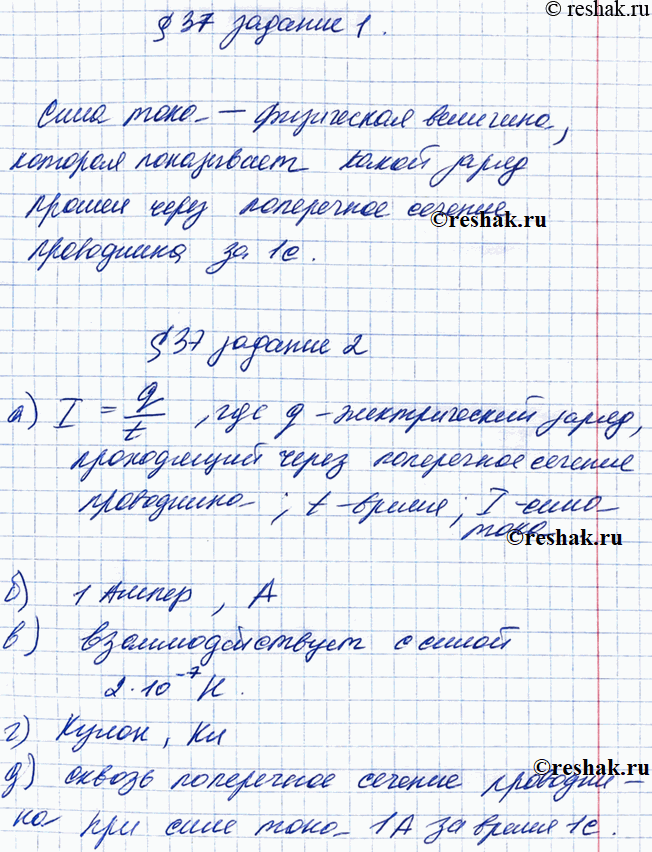 © reshak.ru
§ 37 задание 1.
Сила тока — физическая величина,
которая показывает какой заряд
прошел через поперечное сечение
reshak.ru
проводника за 1с.
§ 37 задание 2
а) I = q/t , где q - электрический заряд,
проходящий через поперечное сечение
проводника ; t - время ; I - сила
тока
©reshak.ru
б) 1 Ампер , А
в) взаимодействует с силой
2·10⁻⁷ Н.
г) Кулон , Кл
©reshak.ru
д) сквозь поперечное сечение проводни-
ка при силе тока 1А за время 1с.
©reshak.ru